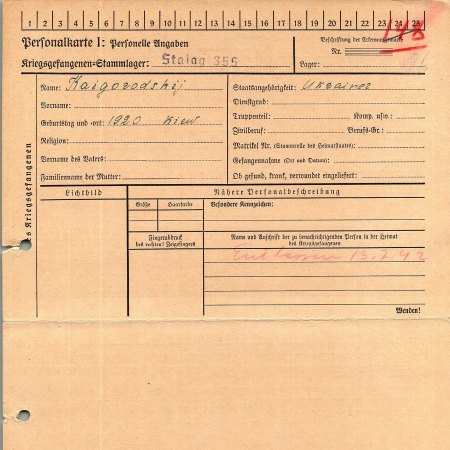 1 2 3 4 5 6 7 8 9 10 11 12 13 14 15 16 17 18 19 20 21 22 23 24 25
148
Personalkarte I: Personelle Angaben
Beschriftung der Erkennungsmarke
Nr.
Kriegsgefangenen-Stammlager: Stalag 355
Lager:
des Kriegsgefangenen
Name: Kaigorodskij
Staatsangehörigkeit: Ukrainer
Vorname:
Dienstgrad:
Geburtstag und -ort: 1920 Kiew
Truppenteil: Komp. usw.:
Religion:
Zivilberuf: Berufs-Gr.:
Vorname des Vaters:
Matrikel Nr. (Stammrolle des Heimatstaates):
Gefangennahme (Ort und Datum):
Familienname der Mutter:
Ob gesund, krank, verwundet eingeliefert:
Lichtbild
Nähere Personalbeschreibung
Größe Haarfarbe
Besondere Kennzeichen:
Fingerabdruck
des rechten! Zeigefingers
Name und Anschrift der zu benachrichtigenden Person in der Heimat
des Kriegsgefangenen
Entlassen 13.7.42
Wenden!